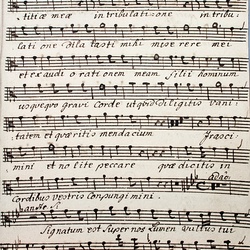 :titiæ meæ in tribulati:one in tribu:
lati one Dila tasti mihi mise rere mei
et ex audi o rati onem meam. filii hominum
usquequo gravi Corde ut quid diligitis vani:
tatem et quæritis mendacium Irasci:
mini et no lite peccare quæ dicitis in
Cordibus vestris Conpungi mini. adagio
Signatum est super nos Lumen vultus tui